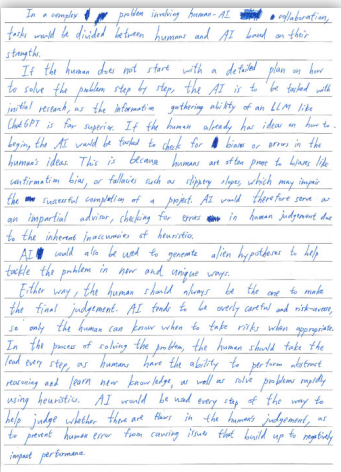 In a complex problem involving human-AI collaboration,
tasks would be divided between humans and AI based on their
strengths.
If the human does not start with a detailed plan on how
to solve the problem step by step, the AI is to be tasked with
initial research, as the information gathering ability of an LLM like
ChatGPT is far superior. If the human already has ideas on how to
begin, the AI would be tasked to check for biases or errors in the
human's ideas. This is because humans are often prone to biases like
confirmation bias, or fallacies such as slippery slopes, which may impair
the successful completion of a project. AI would therefore serve as
an impartial advisor, checking for errors in human judgement due
to the inherent inaccuracies of heuristics.
AI would also be used to generate alien hypotheses to help
tackle the problem in new and unique ways.
Either way, the human should always be the one to make
the final judgement. AI tends to be overly careful and risk-averse,
so only the human can know when to take risks when appropriate.
In the process of solving the problem, the human should take the
lead every step, as humans have the ability to perform abstract
reasoning and learn new knowledge, as well as solve problems rapidly
using heuristics. AI would be used every step of the way to
help judge whether there are flaws in the human's judgement, as
to prevent human error from causing issues that build up to negatively
impact performance.